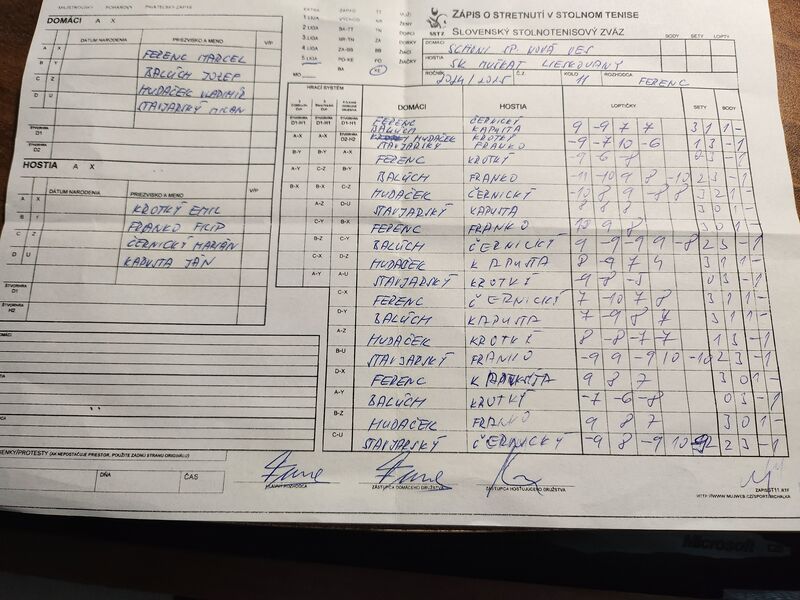 MAJSTROVSKÝ POHÁROVÝ PRIATEĽSKÝ ZÁPAS
DOMÁCI A X
DÁTUM NARODENIA PRIEZVISKO A MENO V/P
A X FERENC MARCEL
B Y BALÚCH JOZEF
C Z HUDAČEK VLADIMÍR
D U STAVJARSKÝ MILAN
ŠTVORHRA
D1
D2
HOSTIA A X
DÁTUM NARODENIA PRIEZVISKO A MENO V/P
A X KROTKÝ EMIL
B Y FRANKO FILIP
C Z ČERNICKÝ MARIÁN
D U KAPUSTA JÁN
ŠTVORHRA
D1
H2
DOMÁCI
EXTRA ZÁPAD TT MUŽI
1 LIGA VÝCHOD NR ŽENY
2 LIGA BA-TT TN DORCI
3 LIGA NR-TN ZA
4 LIGA ZA-BB BB ŽIACI
5 LIGA PO-KE PO ŽIAČKY
BA KE
MO
SSTZ
ZÁPIS O STRETNUTÍ V STOLNOM TENISE
SLOVENSKÝ STOLNOTENISOVÝ ZVÄZ
BODY SETY LOPTY
DOMÁCI SCHENI SP. NOVÁ VES
HOSTIA SK MUŠKÁT LIESKOVANY
ROČNÍK 2014/2015 Č.Z. KOLO 11 ROZHODCA FERENC
HRACÍ SYSTÉM
DOMÁCI HOSTIA LOPTIČKY SETY BODY
D1-H1 D1-H1 D1-H1 FERENC BALÚCH ČERNICKÝ KAPUSTA 9 -9 7 7 3 1 1 -
A-X A-X D2-H2 HUDAČEK STAVJARSKÝ KROTKÝ FRANKO -9 -7 10 -6 1 3 - 1
B-Y B-Y A-X FERENC KROTKÝ -9 -6 -8 0 3 - 1
A-Y C-Z B-Y BALÚCH FRANKO -11 -10 9 8 -10 2 3 - 1
B-X B-X C-Z HUDAČEK ČERNICKÝ -10 8 9 -8 8 3 2 1 -
A-Z D-U STAVJARSKÝ KAPUSTA 8 8 8 3 0 1 -
C-Y B-X FERENC FRANKO 10 9 8 3 0 1 -
B-Z C-Y BALÚCH ČERNICKÝ 9 -9 -9 9 -8 2 3 - 1
C-X D-Z HUDAČEK KAPUSTA 8 -9 7 4 3 1 1 -
A-Y A-U STAVJARSKÝ KROTKÝ -9 -8 -5 0 3 - 1
C-X FERENC ČERNICKÝ 7 -10 7 8 3 1 1 -
D-Y BALÚCH KAPUSTA 7 -9 8 7 3 1 1 -
A-Z HUDAČEK KROTKÝ 8 -8 -7 -7 1 3 - 1
B-U STAVJARSKÝ FRANKO -9 9 -9 10 -10 2 3 - 1
D-X FERENC KAPUSTA 9 8 7 3 0 1 -
A-Y BALÚCH KROTKÝ -7 -6 -8 0 3 - 1
B-Z HUDAČEK FRANKO 9 8 7 3 0 1 -
C-U STAVJARSKÝ ČERNICKÝ -9 8 -9 10 -9 2 3 - 1
ENKY/PROTESTY (AK NEPOSTAČUJE PRIESTOR, POUŽITE ZADNÚ STRANU ORIGINÁLU)
DŇA ČAS
HLAVNÝ ROZHODCA ZÁSTUPCA DOMÁCEHO DRUŽSTVA ZÁSTUPCA HOSŤUJÚCEHO DRUŽSTVA
ZAPISST11.RTF
HTTP://WWW.MUJWEB.CZ/SPORT/MICHALKA
Microsoft